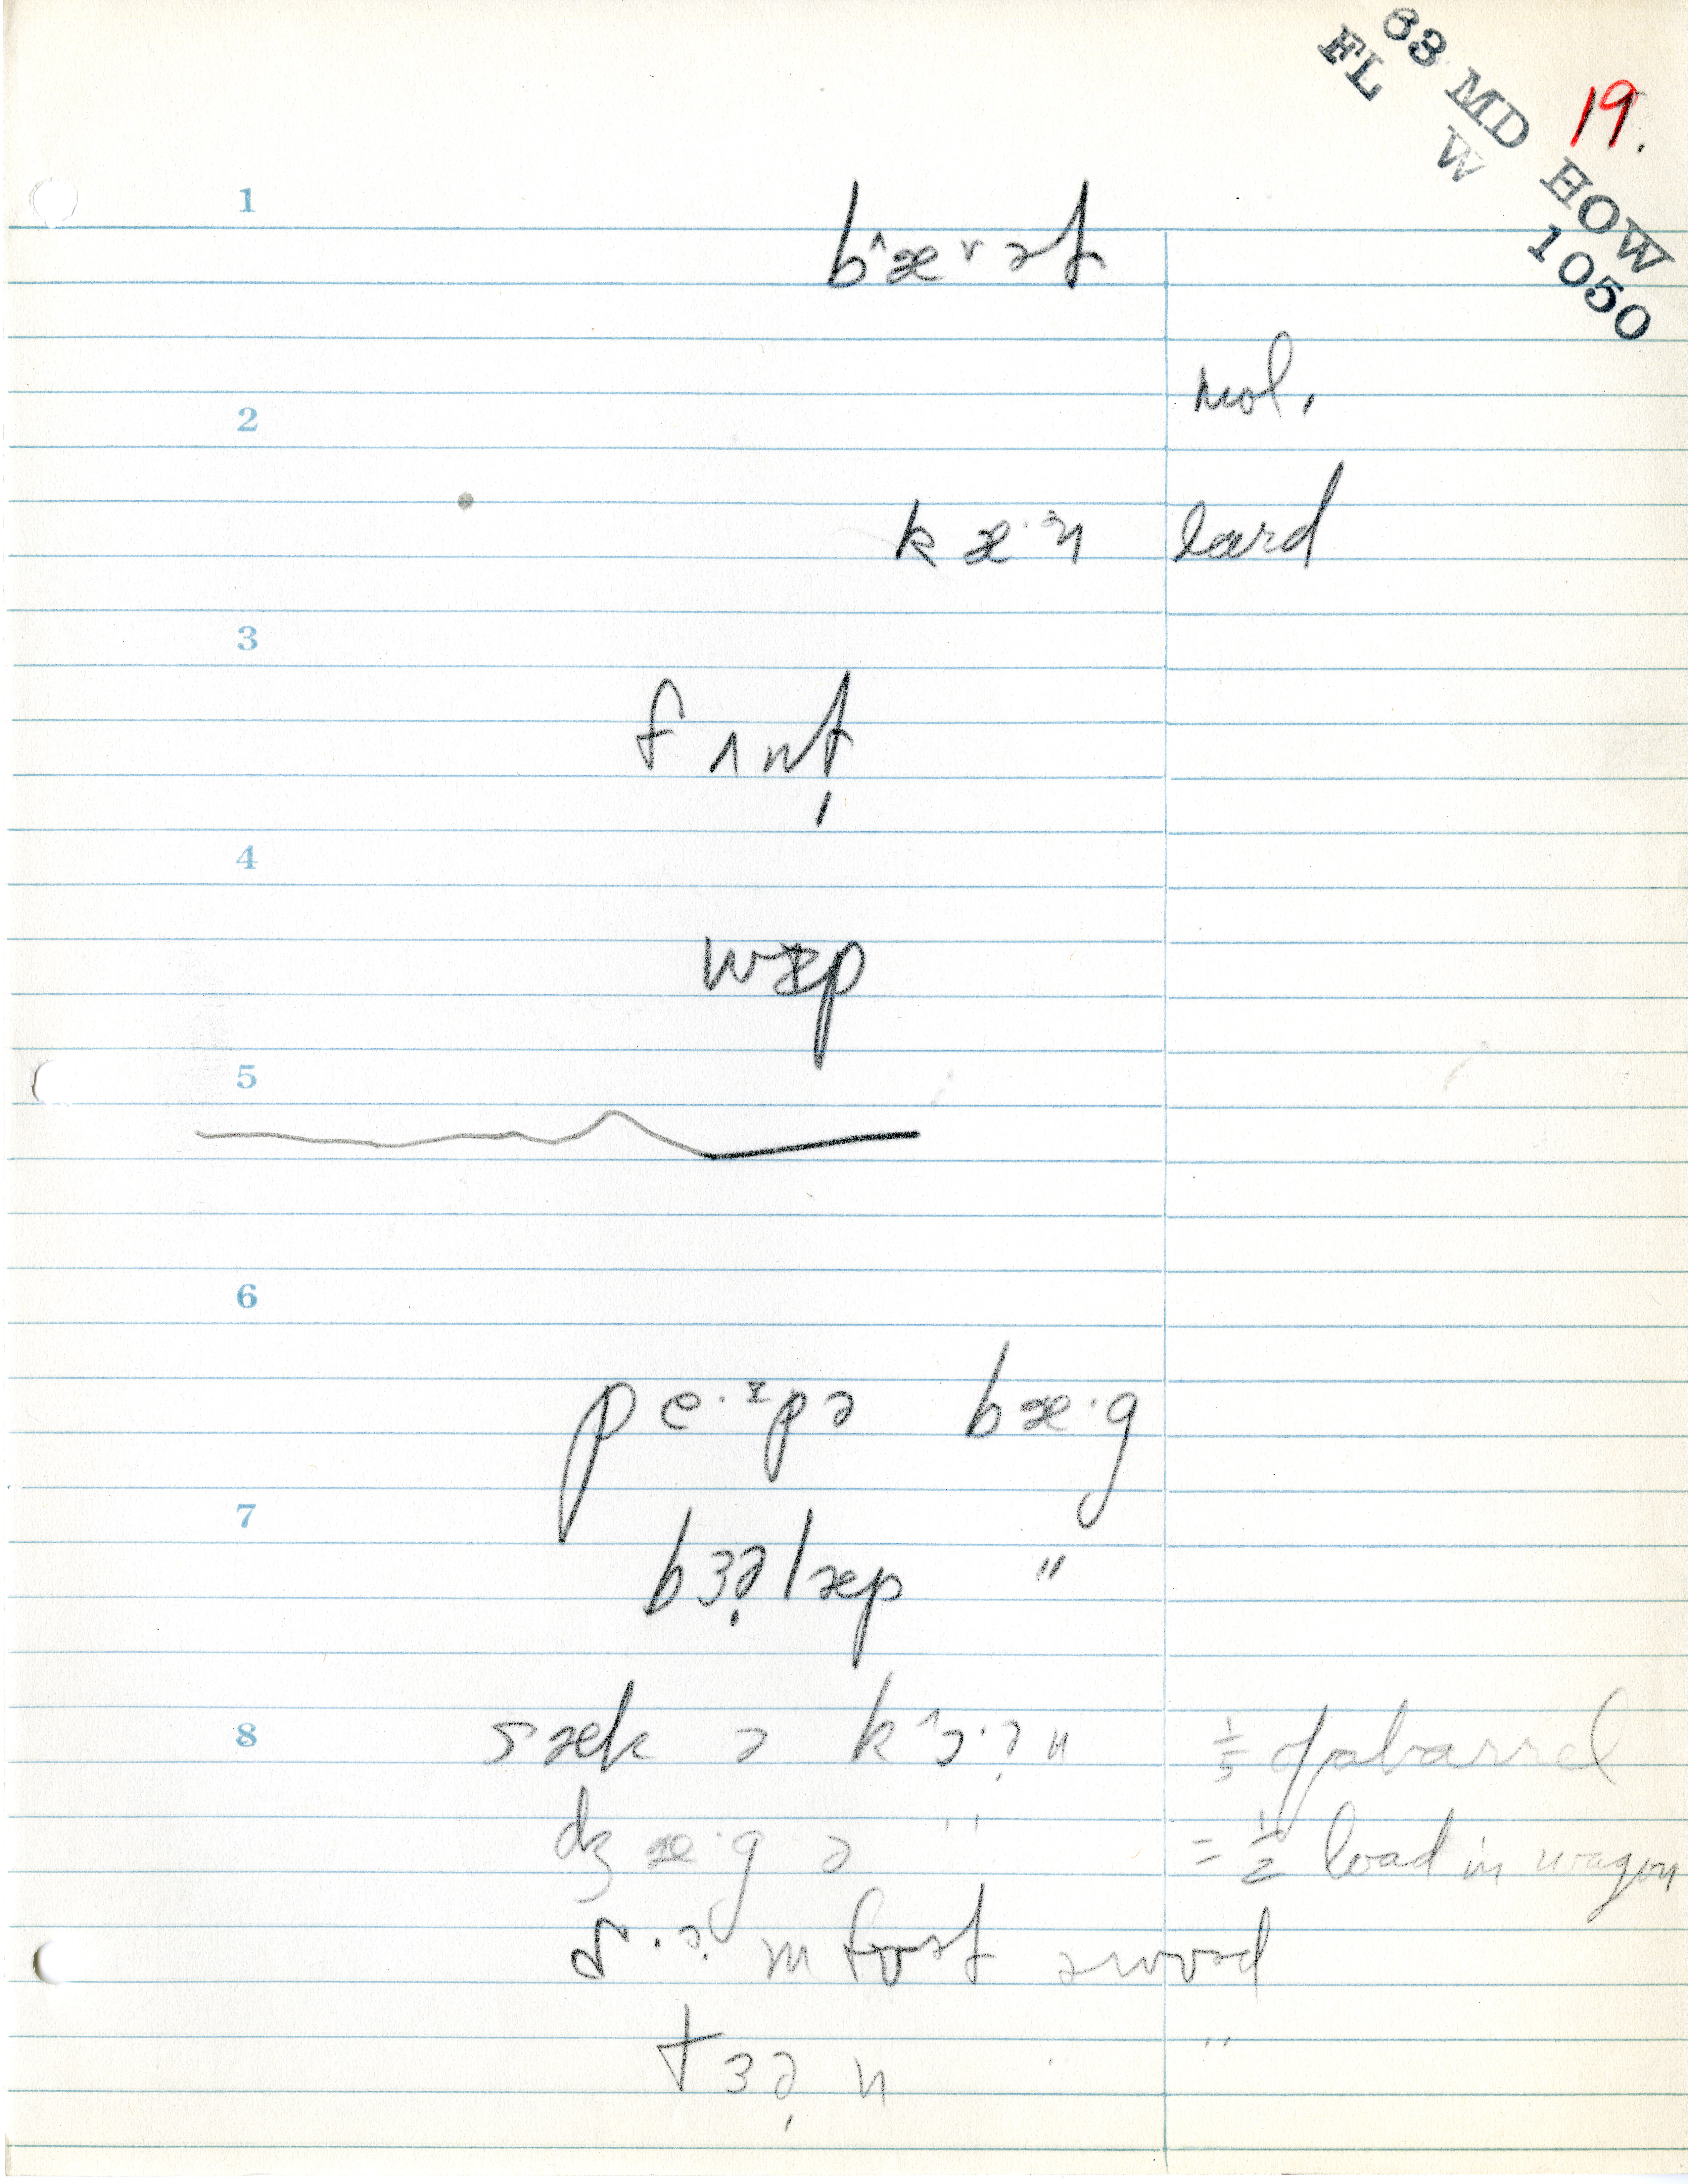 63 MD HOW
FL W 1050
19.
1
2 mol.
kæ·ᵊn lard
3
fʌnt̩
4
wɪp
5
6
pe·ᴵpə bæ·g
7
bɜə̣læp "
8 sæk ə k^ɔ·ə̣n 1/5 of a barrel
dʒæ·g ə " = 1/2 load in wagon
ɑ·ə̣m fʊət ə wʊəd
tɜə̣n "